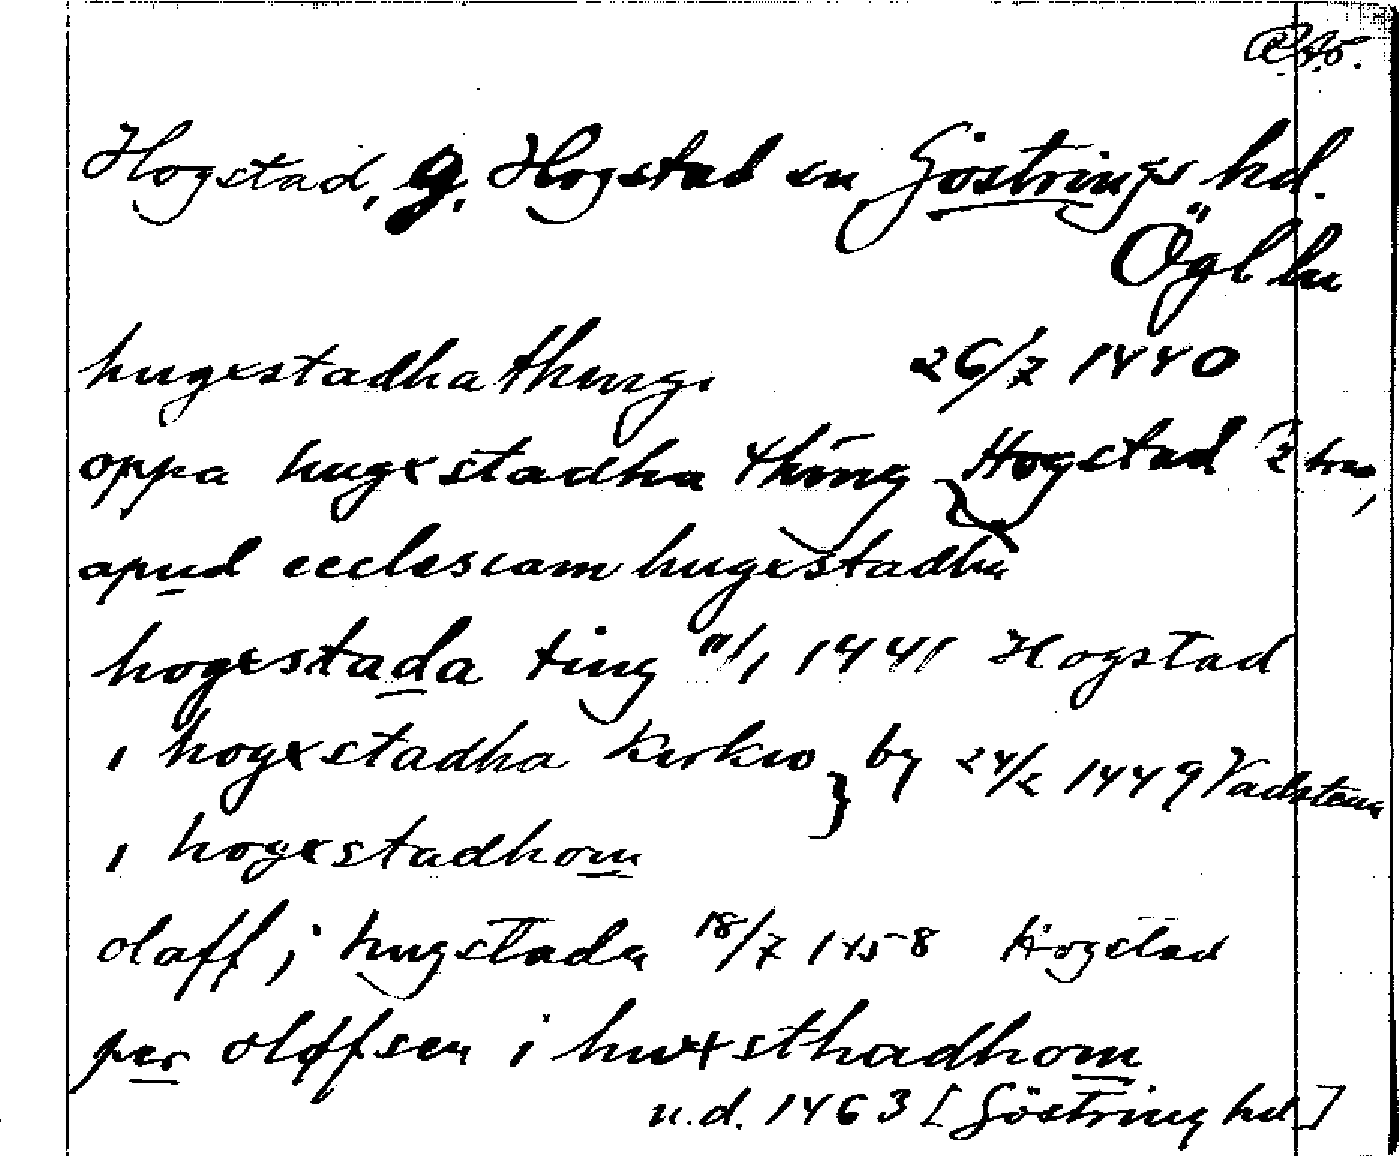 Hogstad, g. Hogstad sn Göstrings hd.
Ögl ln
hugxstadha thingi 26/7 1440
oppa hugxstadha thing } Hogstad
apud ecclesiam hugxstadha
hogxstada ting 11/1 1441 Hogstad
i hogxstadha kirkio } by 24/2 1449 Vadstena
i hogxstadhom
olaff j hugstada 18/7 1458 Hogstad
per oloffsen i huxsthadhom
u.d. 1463 [Göstring hd]